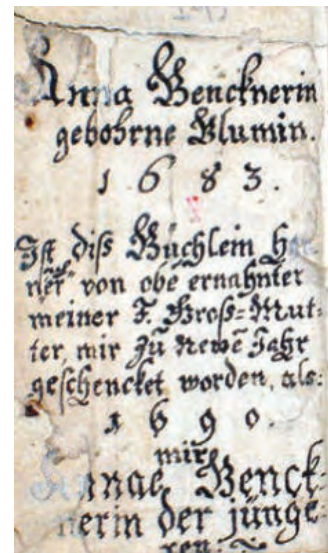 Anna Bencknerin
gebohrne Blumin.
1 6 8 3.
Ist diß Büchlein
von obē ernahnter
meiner F. Groß=Mut-
ter, mir zu Newē Jahr
geschencket worden, als:
1 6 9 0.
mir
Annae Benck-
nerin der jünge-
ren.